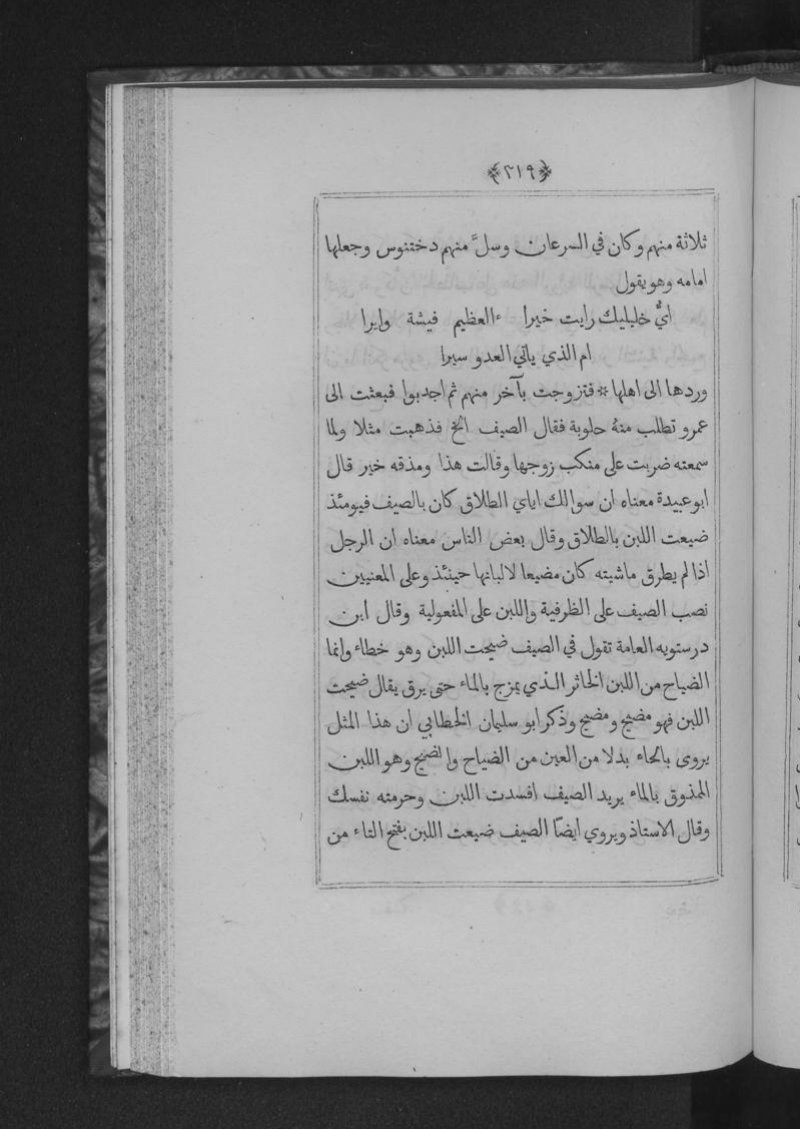 ﴿٢١٩﴾
ثلاثة منهم وكان في السرعان وسلَّ منهم دختنوس وجعلها
امامه وهو يقول
ايُّ خليليك رايت خيرا ءالعظيم فيشة وايرا
ام الذي ياتي العدو سيرا
وردها الى اهلها * فتزوجت بآخر منهم ثم اجدبوا فبعثت الى
عمرو تطلب منهُ حلوبة فقال الصيف الخ فذهبت مثلا ولما
سمعته ضربت على منكب زوجها وقالت هذا ومذقه خير قال
ابو عبيدة معناه ان سوالك اياي الطلاق كان بالصيف فيومئذ
ضيعت اللبن بالطلاق وقال بعض الناس معناه ان الرجل
اذا لم يطرق ماشيته كان مضيعا لالبانها حينئذ وعلى المعنيين
نصب الصيف على الظرفية واللبن على المفعولية وقال ابن
درستويه العامة تقول في الصيف ضيحت اللبن وهو خطاء وانما
الضياح من اللبن الخاثر الذي يمزج بالماء حتى يرق يقال ضيحت
اللبن فهو مضيح ومضيح وذكر ابو سليمان الخطابي ان هذا المثل
يروى بالحاء بدلا من العين من الضياح والضيح وهو اللبن
المذوق بالماء يريد الصيف افسدت اللبن وحرمته نفسك
وقال الاستاذ ويروي ايضًا الصيف ضيعت اللبن بفتح التاء من